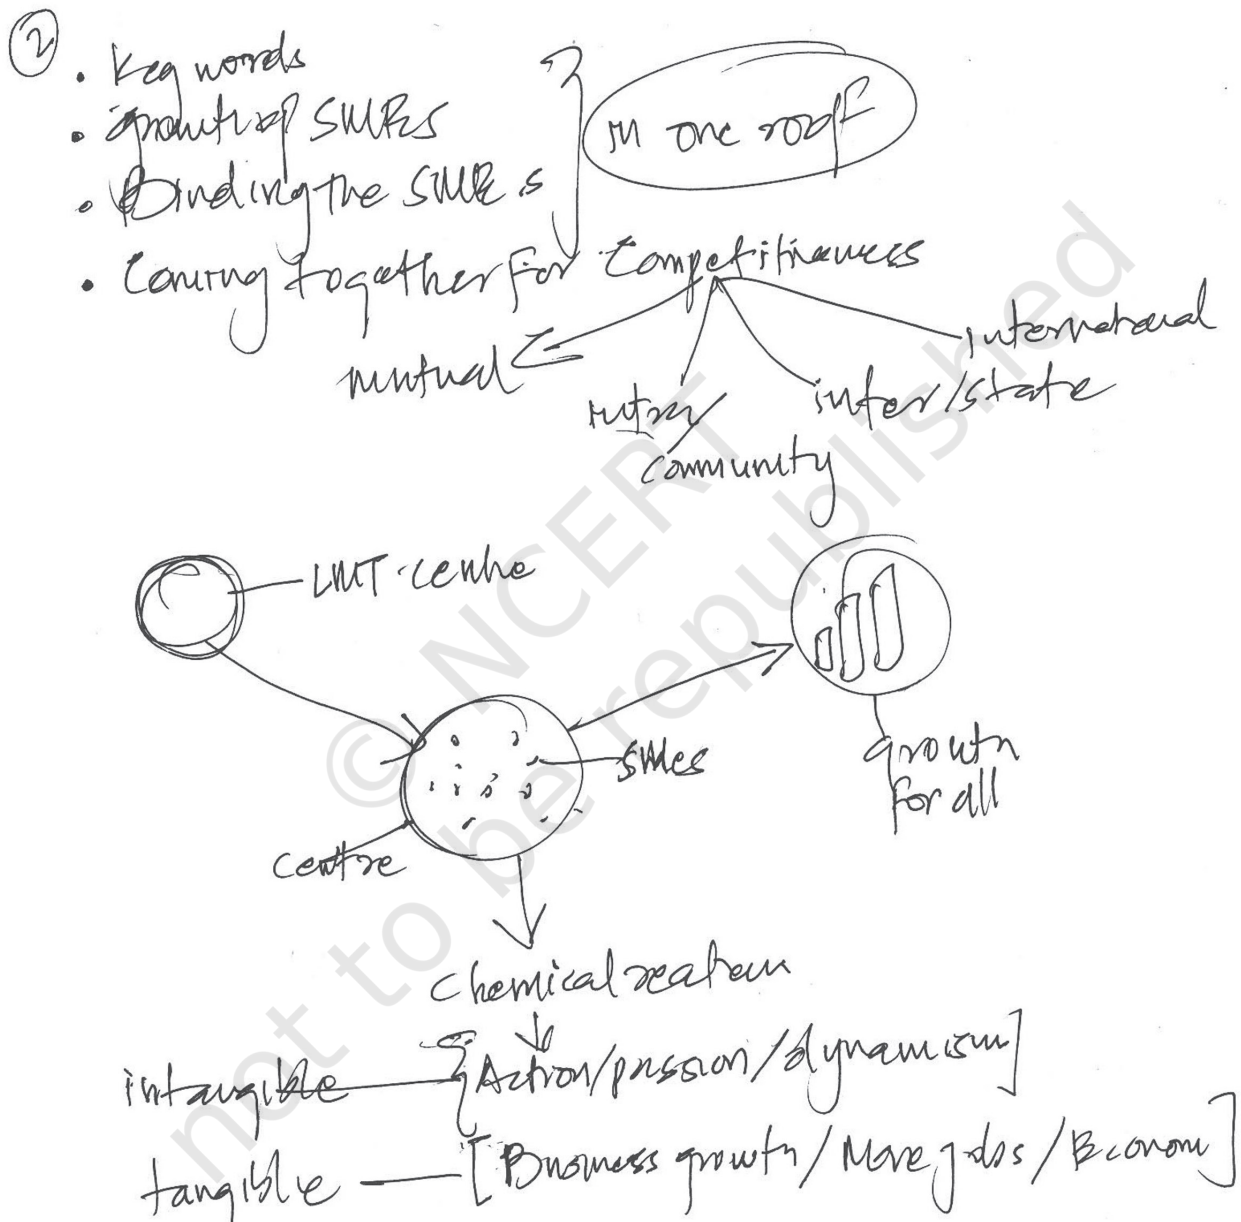 2
• Key words
• growth of SMEs
• Binding the SMEs
in one roof
• Coming together for Competitiveness
mutual
intra/
community
inter/state
international
LMT centre
SMEs
centre
growth
for all
Chemical reaction
intangible { Action/passion/dynamism ]
tangible — [ Business growth / More jobs / Econom ]
© NCERT
not to be republished